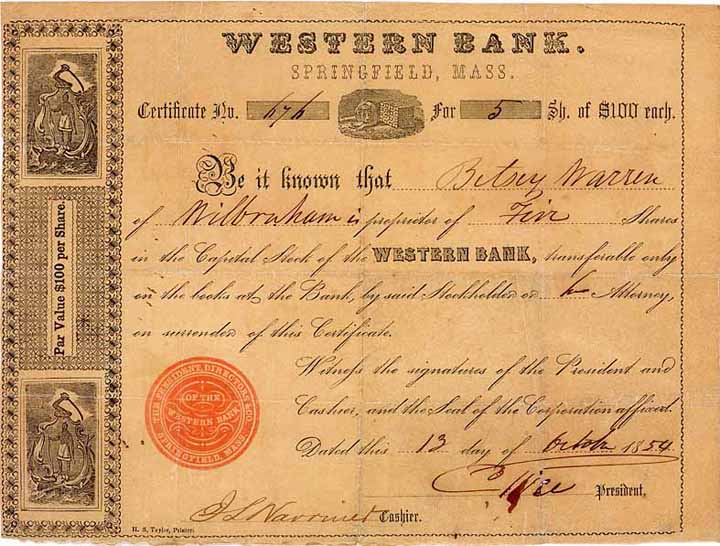 WESTERN BANK.
SPRINGFIELD, MASS.
Certificate No. 676 For 5 Sh. of $100 each.
Be it known that Betsey Warren
of Wilbraham is proprietor of Five Shares
in the Capital Stock of the WESTERN BANK, transferable only
on the books at the Bank, by said Stockholder or h Attorney,
on surrender of this Certificate.
Witness the signatures of the President and
Cashier, and the Seal of the Corporation affixed.
Dated this 13 day of October 1854
President.
Cashier.
H. S. Taylor, Printer.
Par Value $100 per Share.
THE PRESIDENT, DIRECTORS & CO.
OF THE
WESTERN BANK
SPRINGFIELD, MASS.